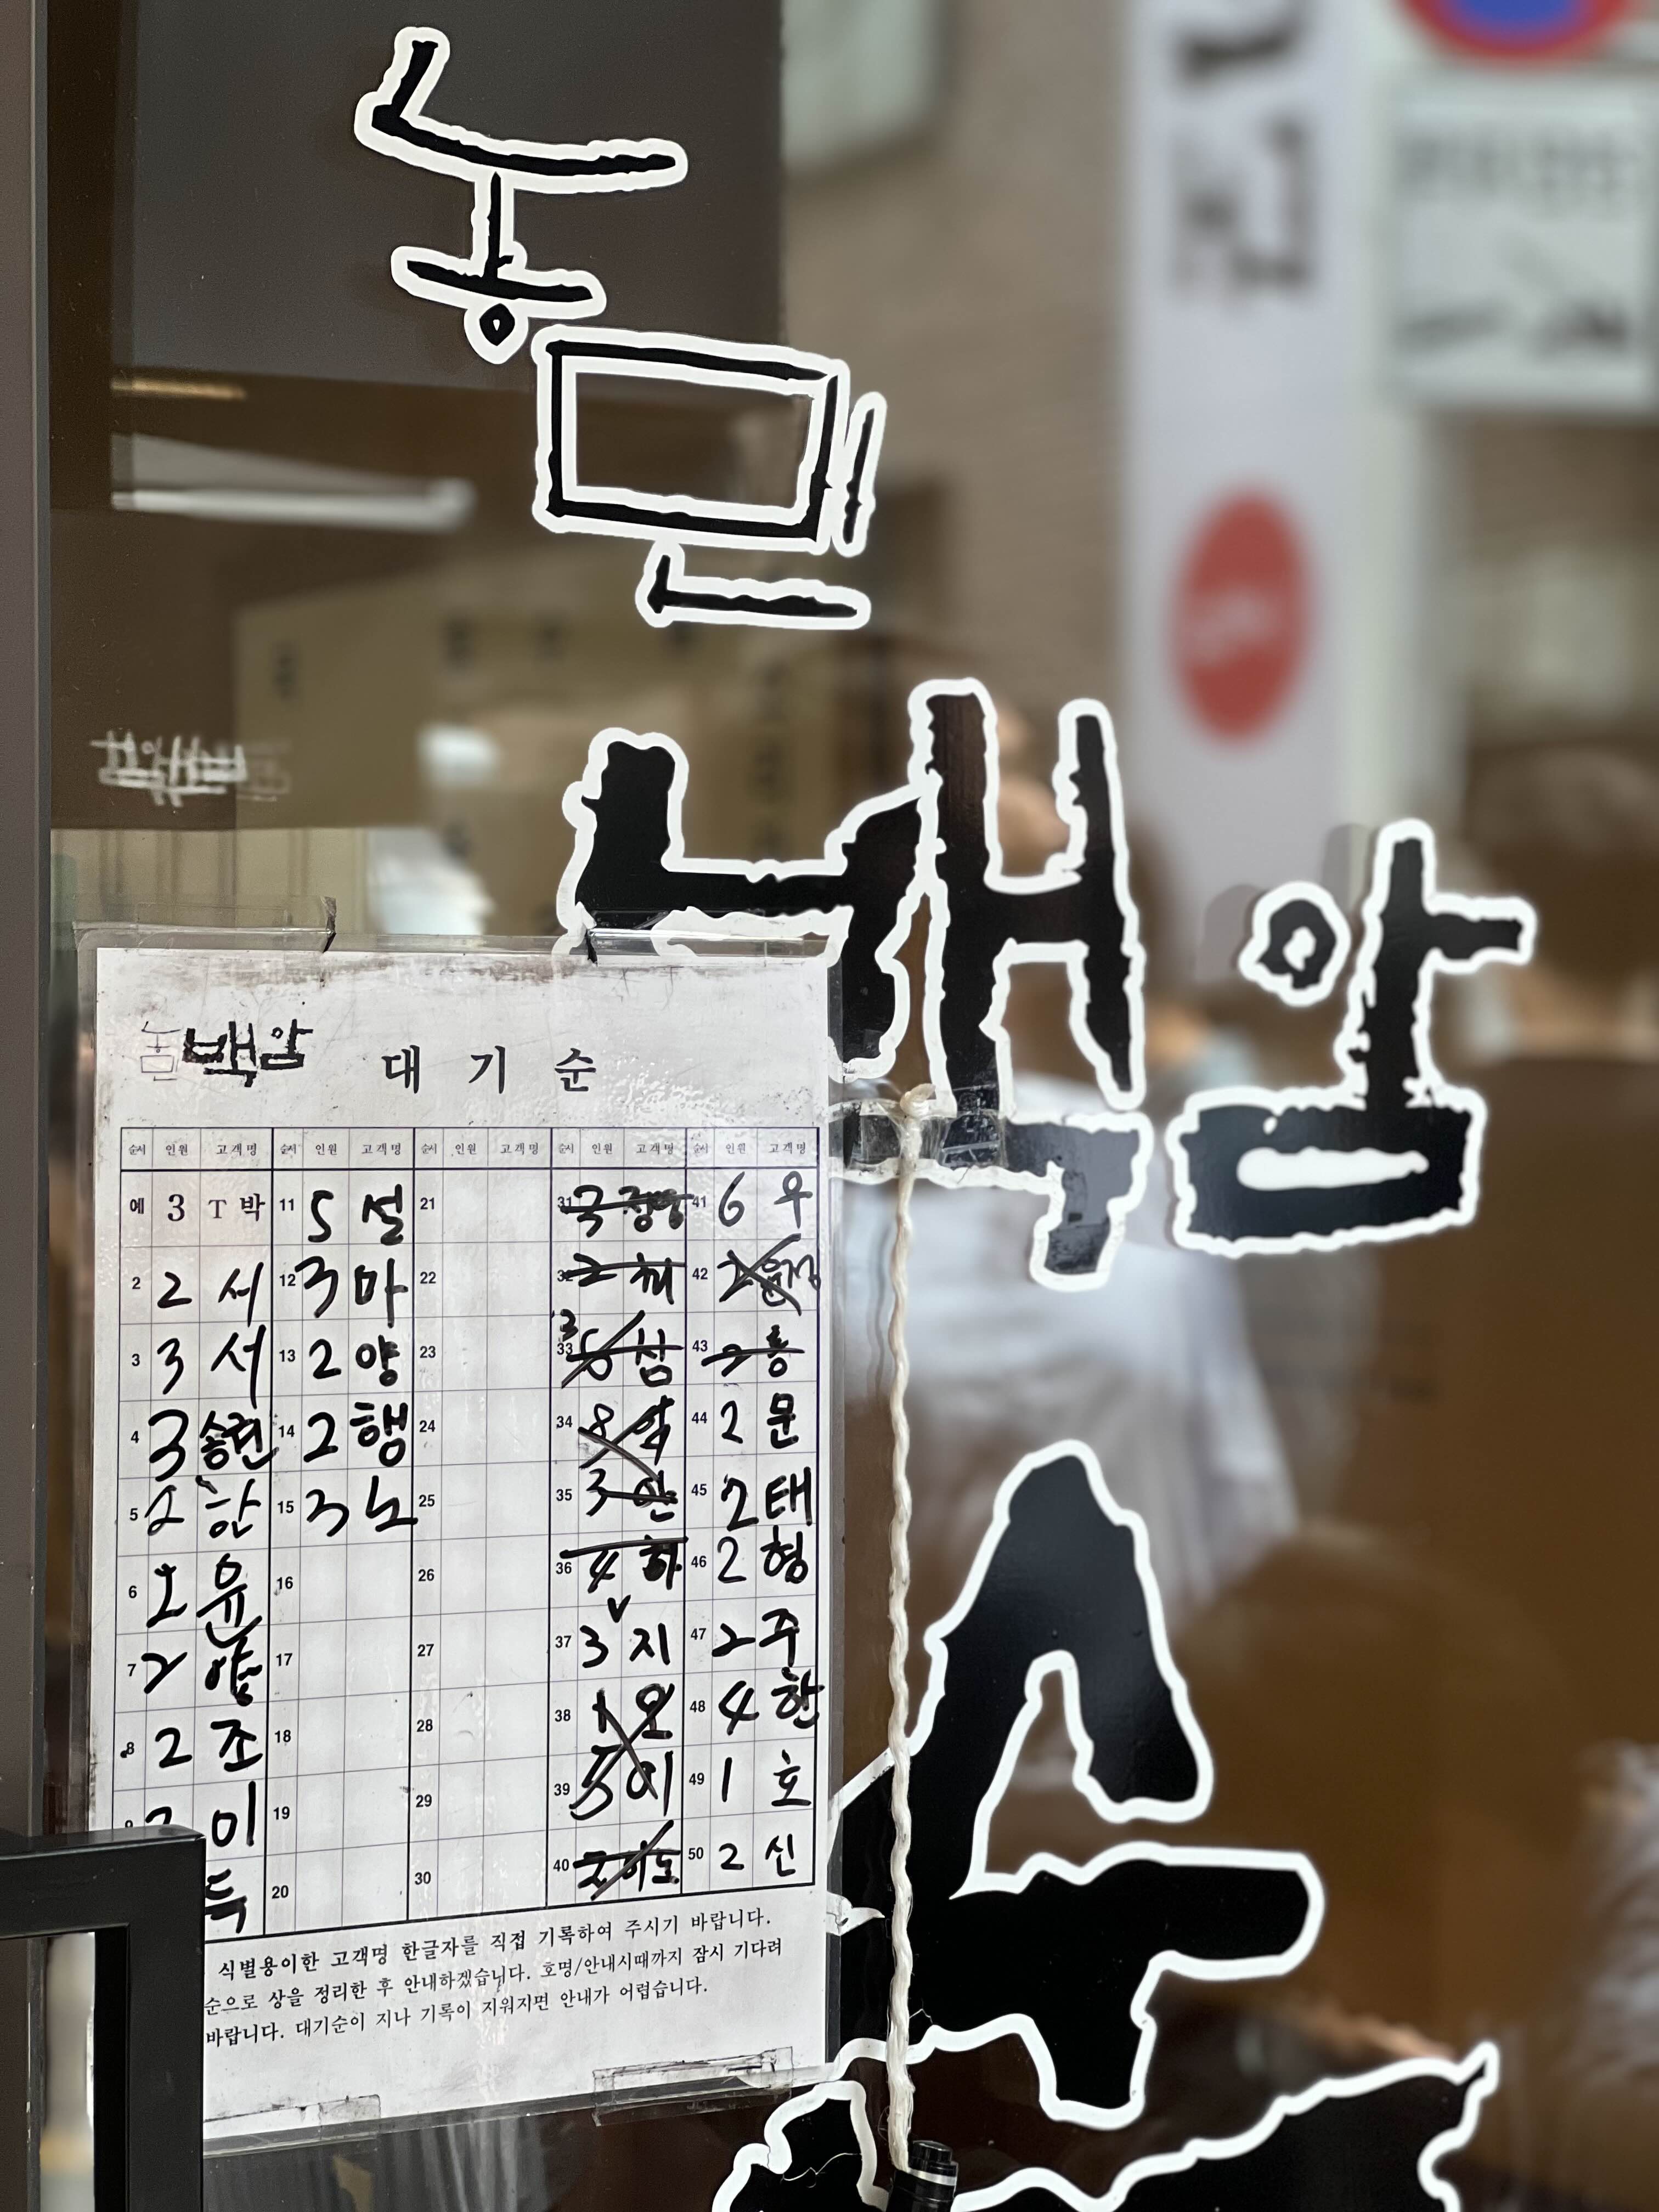 농민
백암
순
농민백암 대기순
순서 인원 고객명 순서 인원 고객명 순서 인원 고객명 순서 인원 고객명 순서 인원 고객명
예 3 T 박 11 5 설 21 31 41 6 우
2 2 서 12 3 마 22 32 2 42 2
3 3 서 13 2 양 23 33 심 43 2 홍
4 3 송현 14 2 행 24 34 8 44 2 문
5 2 한 15 3 노 25 35 3 안 45 2 태
6 2 윤 16 26 36 4 하 46 2 형
7 2 양 17 27 37 3 지 47 2 주
8 2 조 18 28 38 1 오 48 4 한
이 19 29 39 5 이 49 1 호
득 20 30 40 50 2 신
식별용이한 고객명 한글자를 직접 기록하여 주시기 바랍니다.
순으로 상을 정리한 후 안내하겠습니다. 호명/안내시때까지 잠시 기다려
바랍니다. 대기순이 지나 기록이 지워지면 안내가 어렵습니다.